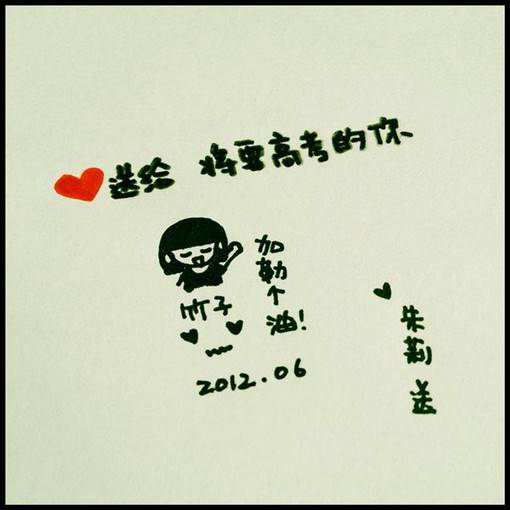 送给 将要高考的你
加勒个油!
竹子
2012.06
朱莉 送